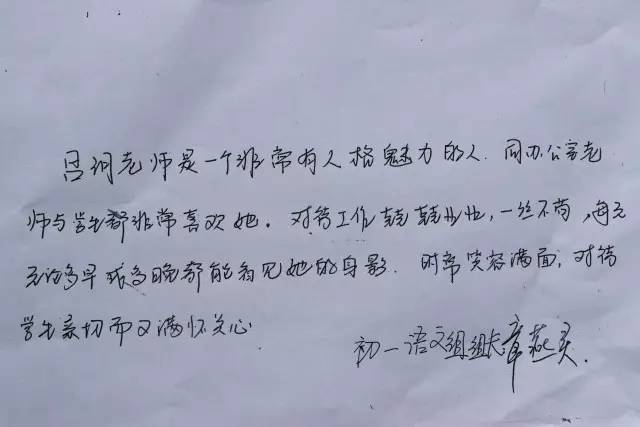 吕润老师是一个非常有人格魅力的人.同办公室老
师与学生都非常喜欢她。对待工作兢兢业业,一丝不苟,每天
无论多早或多晚都能看见她的身影.时常笑容满面,对待
学生亲切而又满怀关心
初一语文组组长章燕灵.